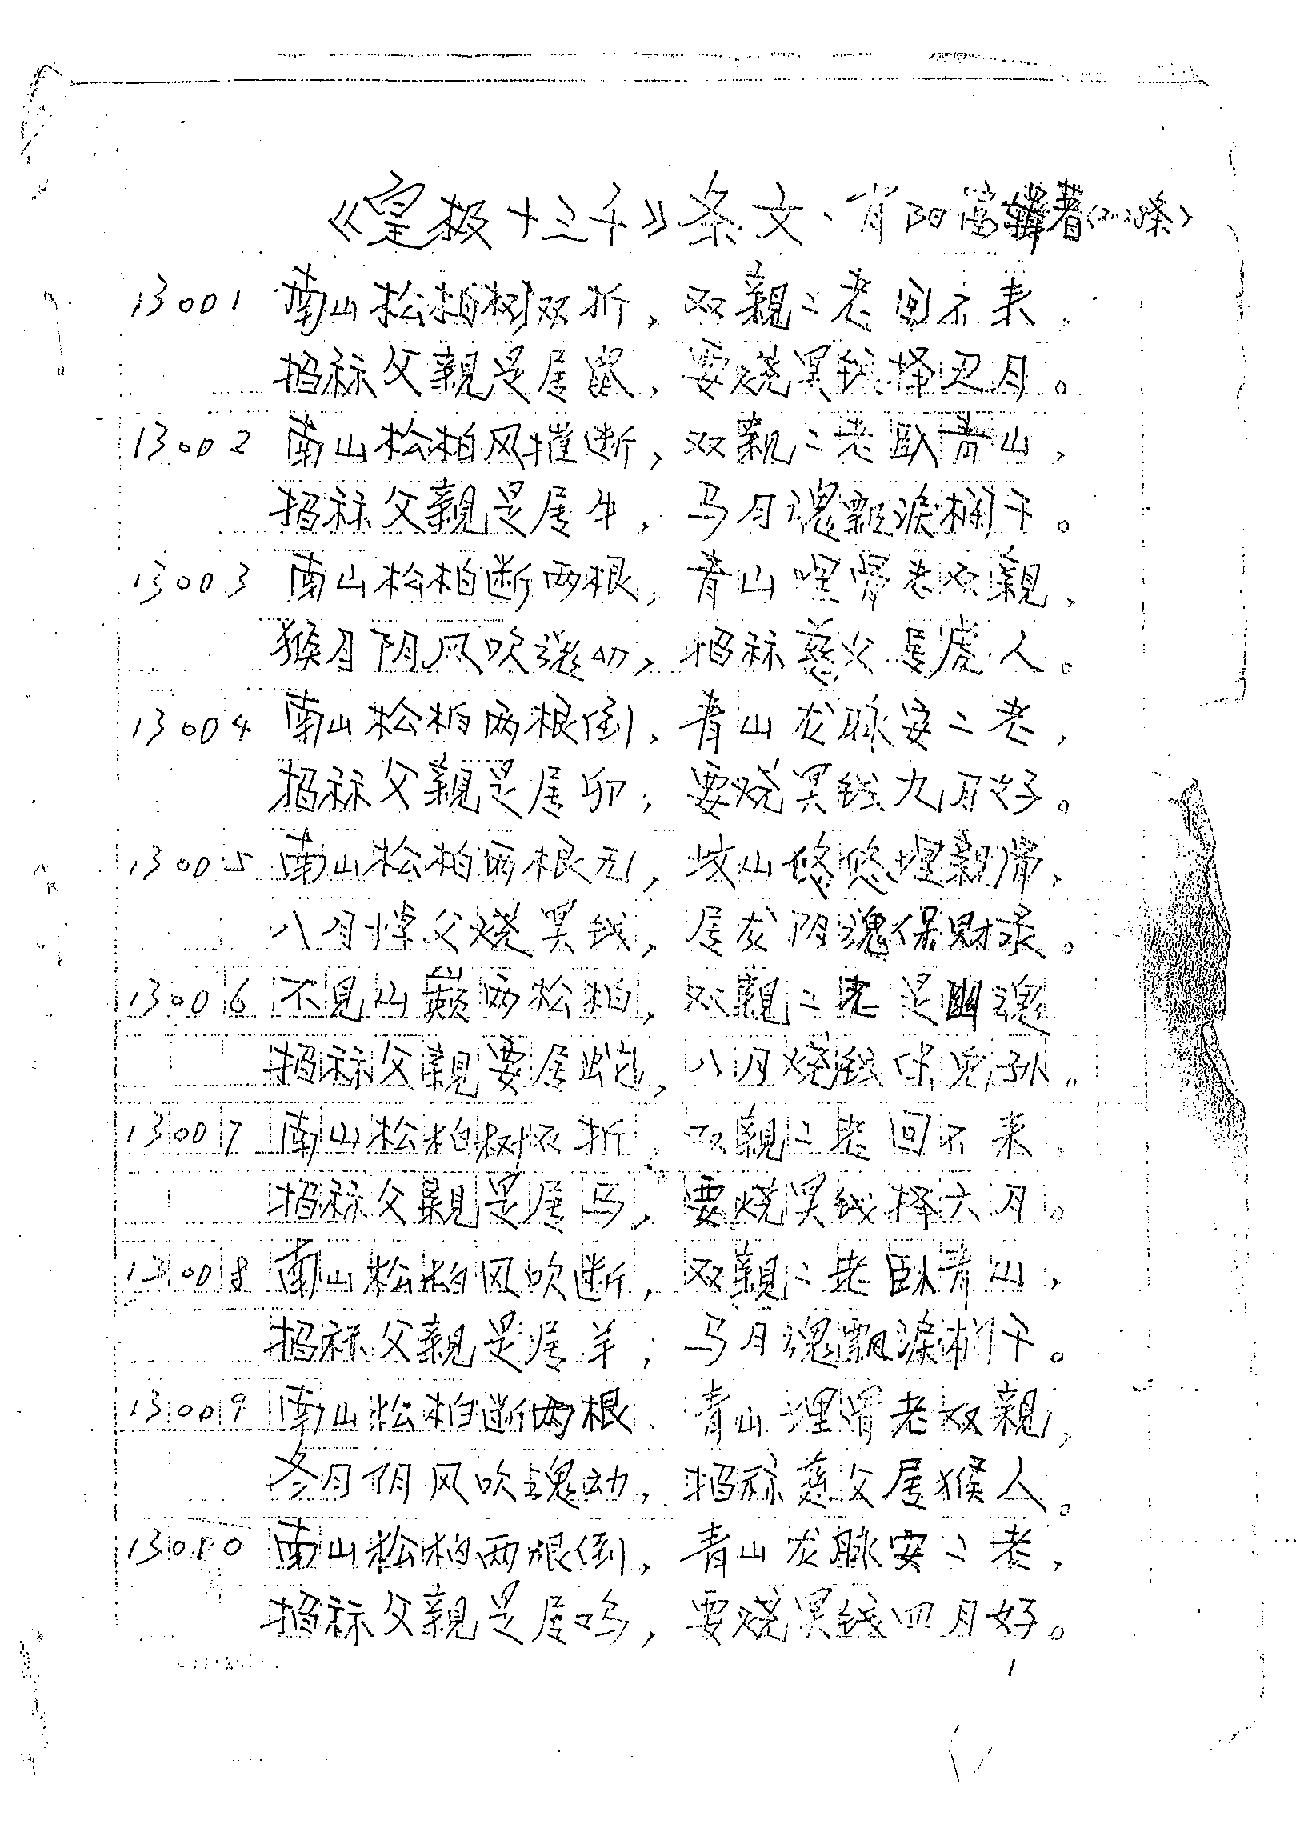 《皇极十三千》条文、肖阳富辑著
13001 南山松柏树双折，双亲二老回不来，
招称父亲是居鼠，要烧冥钱择丑月。
13002 南山松柏风摧断，双亲二老卧青山，
招称父亲是居牛，马月魂飘泪栏干。
13003 南山松柏断两根，青山埋骨老双亲，
猴月阴风吹魂动，招称慈父居虎人。
13004 南山松柏两根倒，青山龙脉安二老，
招称父亲是居卯，要烧冥钱九月好。
13005 南山松柏两根无，坟山悠悠埋亲骨，
八月悼父烧冥钱，居龙阴魂保财录。
13006 不见山巅两松柏，双亲二老是幽魂
招称父亲要居蛇，八月烧钱保儿孙。
13007 南山松柏树双折，双亲二老回不来，
招称父亲是居马，要烧冥钱择六月。
13008 南山松柏风吹断，双亲二老卧青山，
招称父亲是居羊，马月魂飘泪栏干。
13009 南山松柏断两根、青山埋骨老双亲，
冬月阴风吹魂动，招称慈父居猴人。
13010 南山松柏两根倒，青山龙脉安二老，
招称父亲是居鸡，要烧冥钱四月好。
1